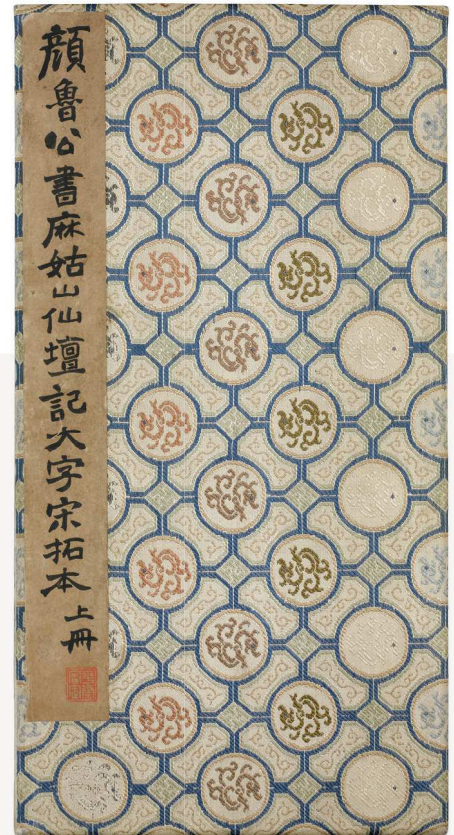 顏魯公書麻姑山仙壇記大字宋拓本上冊